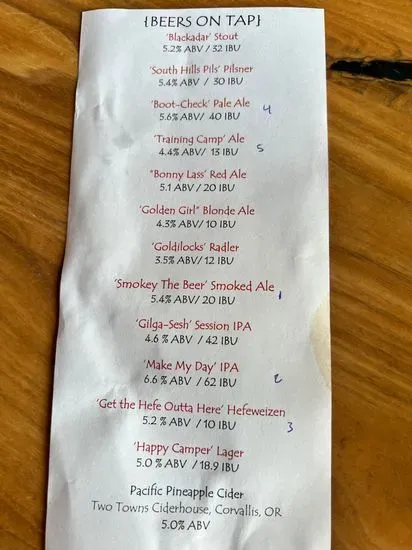 {BEERS ON TAP}
'Blackadar' Stout
5.2% ABV / 32 IBU
'South Hills Pils' Pilsner
5.4% ABV / 30 IBU
'Boot-Check' Pale Ale 4
5.6% ABV/ 40 IBU
'Training Camp' Ale 5
4.4% ABV/ 13 IBU
"Bonny Lass' Red Ale
5.1 ABV / 20 IBU
'Golden Girl" Blonde Ale
4.3% ABV/ 10 IBU
'Goldilocks' Radler
3.5% ABV/ 12 IBU
'Smokey The Beer' Smoked Ale 1
5.4% ABV/ 20 IBU
'Gilga-Sesh' Session IPA
4.6 % ABV / 42 IBU
'Make My Day' IPA 2
6.6 % ABV / 62 IBU
'Get the Hefe Outta Here' Hefeweizen
5.2 % ABV / 10 IBU 3
'Happy Camper' Lager
5.0 % ABV / 18.9 IBU
Pacific Pineapple Cider
Two Towns Ciderhouse, Corvallis, OR
5.0% ABV